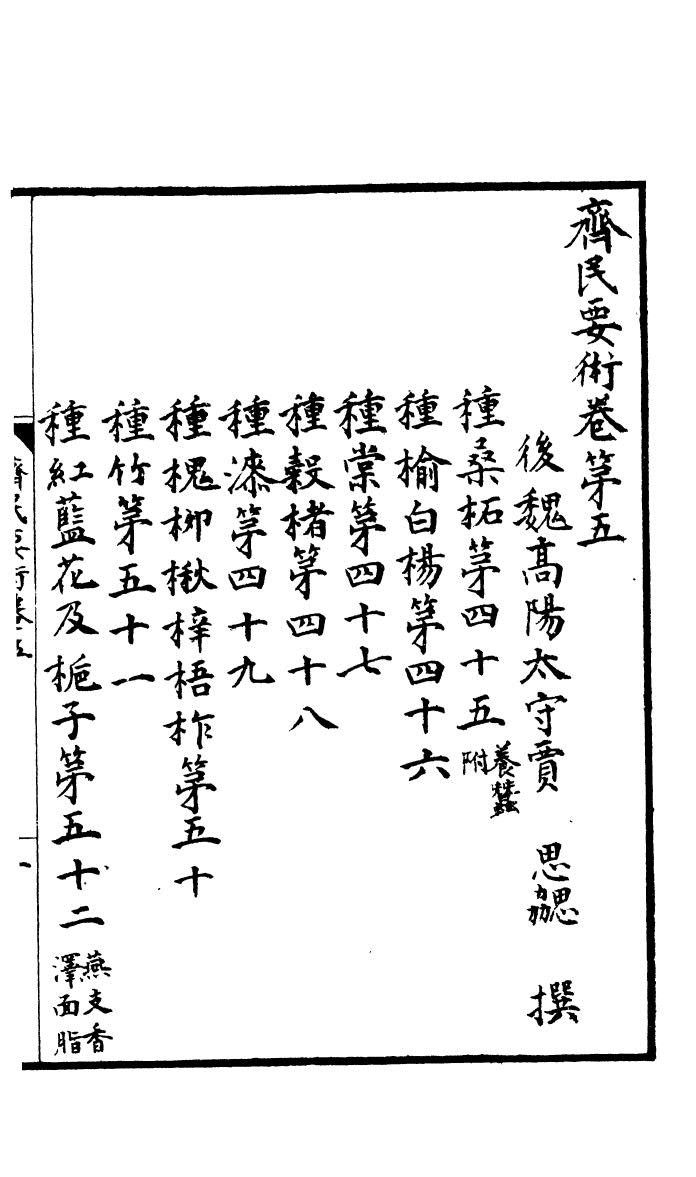 齊民要術卷第五
後魏高陽太守賈思勰撰
種桑柘第四十五養蠶附
種榆白楊第四十六
種棠第四十七
種榖楮第四十八
種漆第四十九
種槐柳楸梓梧柞第五十
種竹第五十一
種紅藍花及梔子第五十二燕支香澤面脂
齊民要術卷五
一